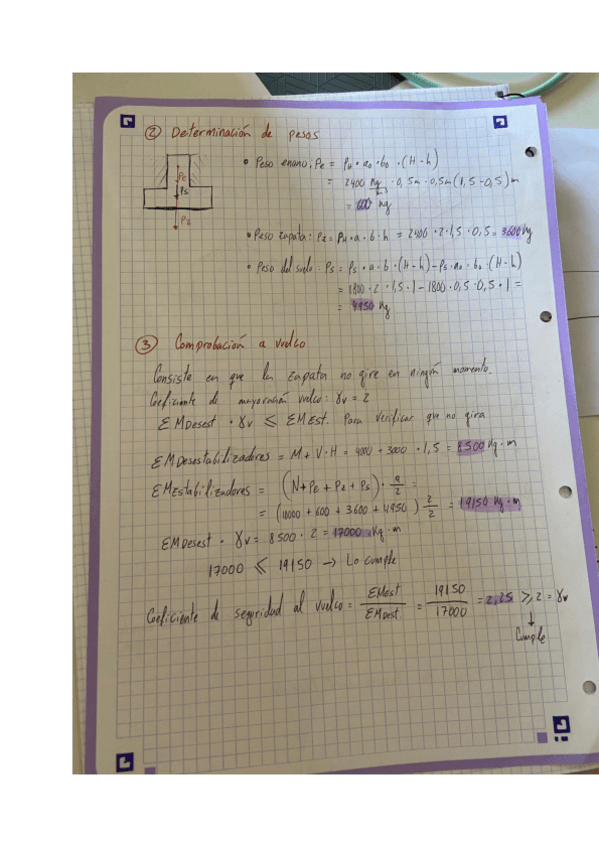 ② Determinación de pesos
Pe
Ps
Pz
• Peso enano: Pe = ρH · a₀ · b₀ · (H - h)
= 2400 Kg/m³ · 0,5m · 0,5m (1,5 - 0,5) m
= 600 Kg
• Peso zapata: Pz = ρH · a · b · h = 2400 · 2 · 1,5 · 0,5 = 3600 Kg
• Peso del suelo: Ps = ρs · a · b · (H - h) - ρs · a₀ · b₀ · (H - h)
= 1800 · 2 · 1,5 · 1 - 1800 · 0,5 · 0,5 · 1 =
= 4950 Kg
③ Comprobación a vuelco
Consiste en que la zapata no gire en ningún momento.
Coeficiente de mayoración vuelco: γv = 2
ΣMDesest · γv ≤ ΣMEst. Para verificar que no gira
ΣMDesestabilizadores = M + V · H = 4000 + 3000 · 1,5 = 8500 Kg · m
ΣMEstabilizadores = (N + Pe + Pz + Ps) · a/2 =
= (10000 + 600 + 3600 + 4950) 2/2 = 19150 Kg · m
ΣMDesest · γv = 8500 · 2 = 17000 Kg · m
17000 ≤ 19150 → Lo cumple
Coeficiente de seguridad al vuelco = ΣMEst/ΣMDest = 19150/17000 = 2,25 ≥ 2 = γv
↓
Cumple